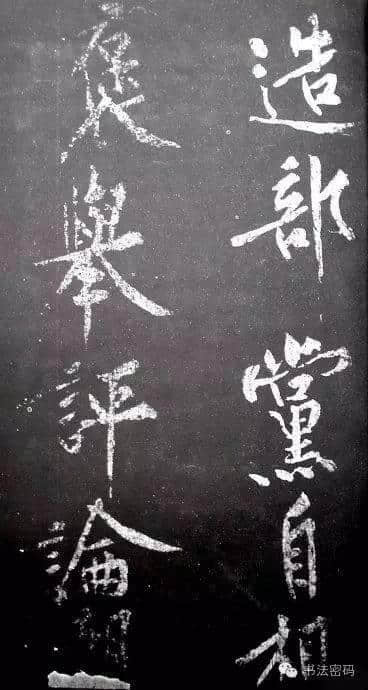 造部黨自相
褒舉評論
书法密码